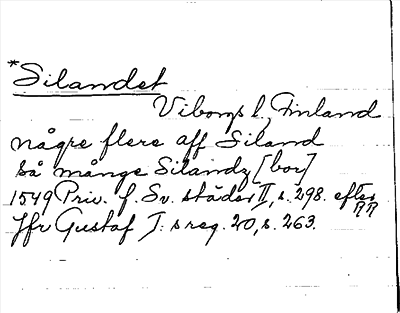 *Silandet
Viborgs l., Finland
någre flere aff Siland
så månge Silandz [bor]
1549 Priv. f. Sv. städer II, s. 298. efter RR
Jfr Gustaf I:s reg. 20, s. 263.